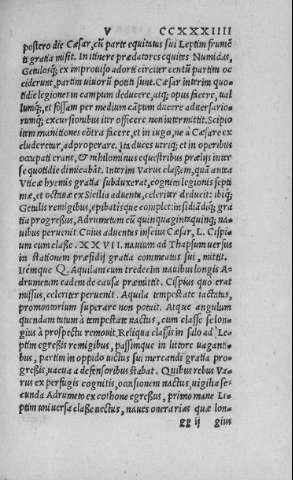 V CCXXXIIII
postero die Cæsar, cũ parte equitatus sui Leptim frumẽ
ti gratia misit. In itinere prædatores equites Numidas,
Getulosq; ex improuiso adorti circiter centũ partim oc
ciderunt, partim viuorũ potiti sunt. Cæsar interim quo
tidie legiones in campum deducere, atq; opus facere, ual
lumq;, et fossam per medium cãpum ducere aduersario-
rumq; excursionibus iter officere non intermittit. Scipio
item munitiones cõtra facere, et in iugo, ne à Cæsare ex
cluderetur, adproperare. Ita duces utriq; et in operibus
occupati erant, & nihilominus equestribus prælijs inter
se quotidie dimicabãt. Interim Varus classem, quã antea
Vticæ hyemis gratia subduxerat, cognitis legionis septi
mæ, et octauæ ex Sicilia aduentu, celeriter deducit: ibiq;
Getulis remigibus, epibatisque complet: insidiãdiq; gra
tia progressus, Adrumetum cũ quinquagintaquinq; na-
uibus peruenit. Cuius aduentus inscius Cæsar, L. Cispiũ
um cum classe. XXVII. nauium ad Thapsum uersus
in stationem præsidij gratia commeatus sui, mittit.
Itemque Q. Aquilam cum tredecim nauibus longis A-
drumetum eadem de causa præmittit. Cispius quo erat
missus, celeriter peruenit. Aquila tempestate iactatus,
promontorium superare non potuit. Atque angulum
quendam tutum à tempestate nactus, cum classe se lon-
gius à prospectu remouit. Reliqua classis in salo ad Le-
ptim egressis remigibus, passimque in littore uaganti-
bus, partim in oppido uictus sui mercandi gratia pro-
gressis, uacua à defensoribus stabat. Quibus rebus Va-
rus ex perfugis cognitis, occasionem nactus, uigilia se-
cunda Adrumeto ex cothone egressus, primo mane Le-
ptim uniuersa classe uectus, naues onerarias quæ lon-
gg ij gius